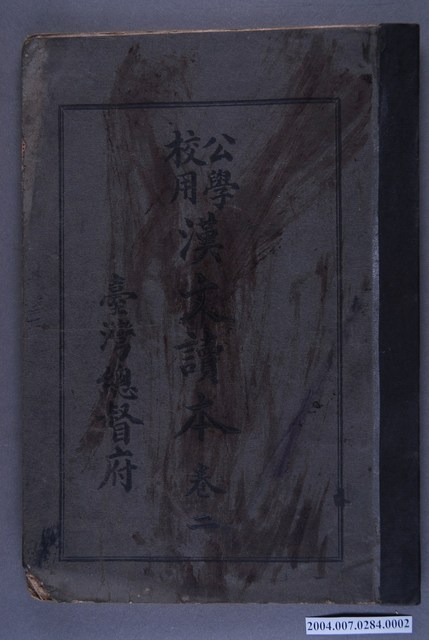 公學校用
漢文讀本 卷二
臺灣總督府
2004.007.0284.0002